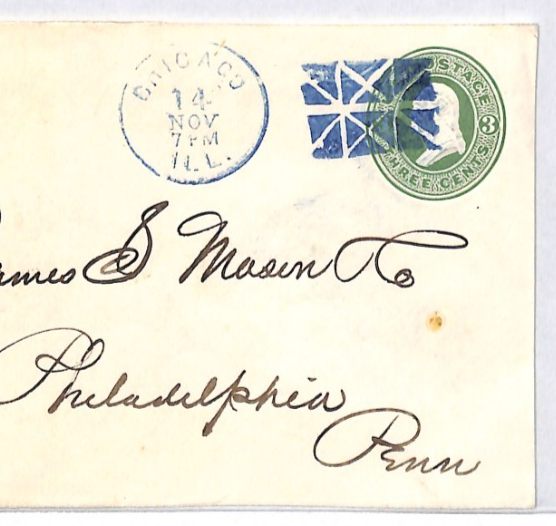 CHICAGO
14
NOV
7PM
ILL.
POSTAGE
3
THREE CENTS
ames S Mason & Co
Philadelphia
Penn